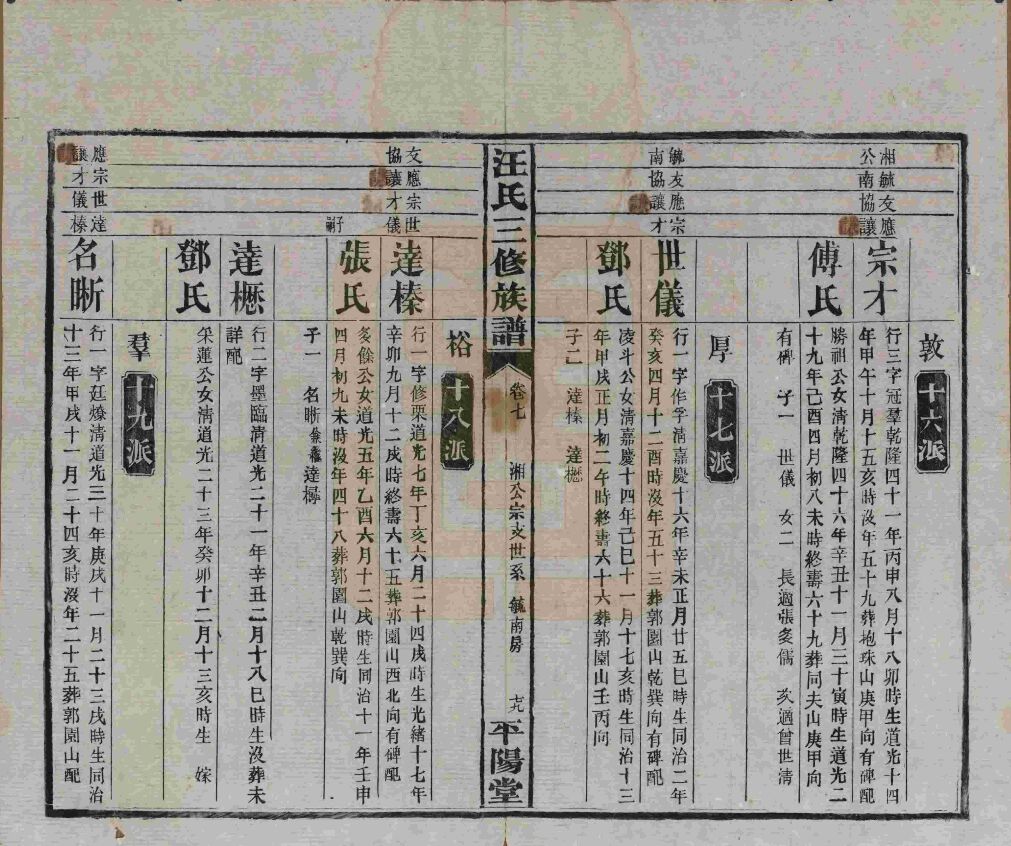 敦 十六派
湘毓友應
公南協讓
宗才
行三字冠羣乾隆四十一年丙申八月十八卯時生道光十四
年甲午十月十五亥時沒年五十九葬袍珠山庚甲向有碑配
傅氏
勝祖公女清乾隆四十六年辛丑十一月三十寅時生道光二
十九年己酉四月初八未時終壽六十九葬同夫山庚甲向
有碑 子一 世儀 女二 長適張
儒 次適曾世清
厚 十七派
毓友應宗
南協讓才
世儀
行一字作孚清嘉慶十六年辛未正月廿五巳時生同治二年
癸亥四月十二酉時沒年五十三葬郭園山乾巽向有碑配
鄧氏
凌斗公女清嘉慶十四年己巳十一月十七亥時生同治十三
年甲戌正月初二午時終壽六十六葬郭園山壬丙向
子二 達榛 達櫪
汪氏三修族譜 卷七 湘公宗支世系 毓南房 平陽堂
裕 十八派
友應宗世
協讓才儀
達榛
行一字修栗道光七年丁亥六月二十四戌時生光緒十七年
辛卯九月十二戌時終壽六十五葬郭園山西北向有碑配
子嗣
張氏
餘公女道光五年乙酉六月十二戌時生同治十一年壬申
四月初九未時沒年四十八葬郭園山乾巽向
子一 名晣
達櫪
行二字墨臨清道光二十一年辛丑二月十八巳時生沒葬未
詳配
鄧氏
采蓮公女清道光二十三年癸卯十二月十三亥時生 嫁
羣 十九派
應宗世達
讓才儀榛
名晣
行一字廷燎清道光三十年庚戌十一月二十三戌時生同治
十三年甲戌十一月二十四亥時沒年二十五葬郭園山配